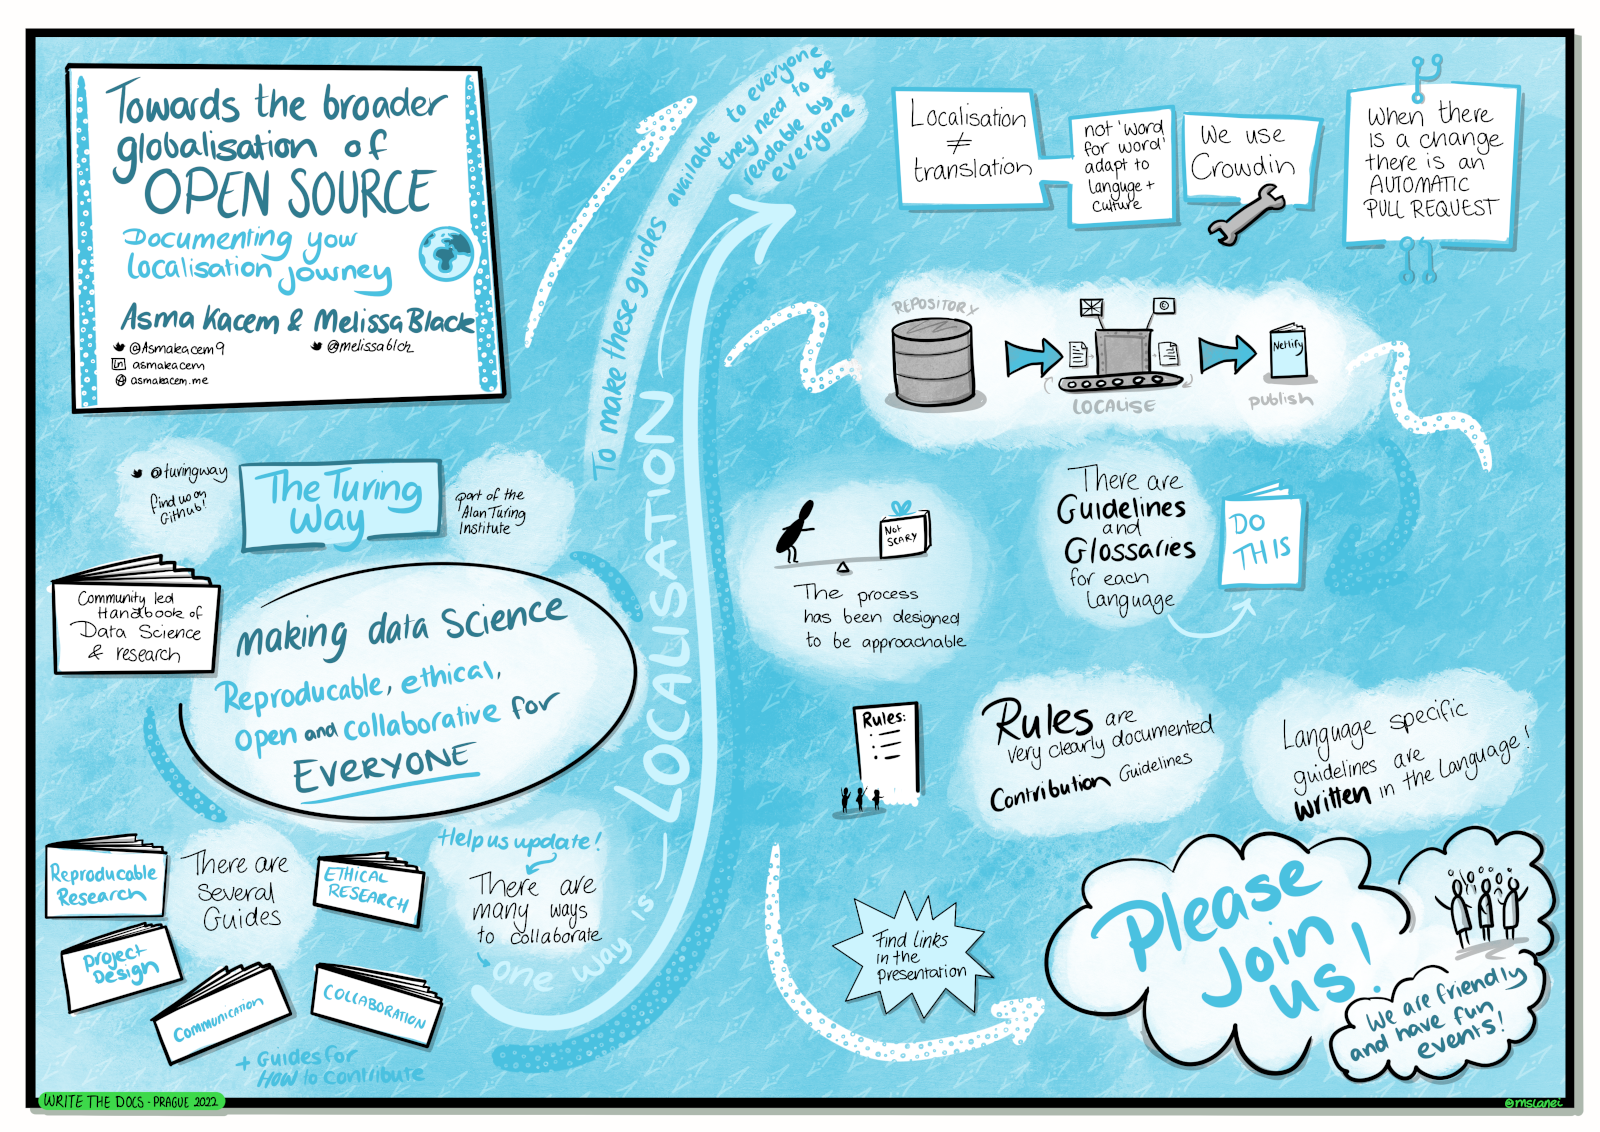 Towards the broader
globalisation of
OPEN SOURCE
Documenting your
localisation journey
Asma Kacem & Melissa Black
@Asmakacem9
@melissablck
in asmakacem
asmakacem.me
@turingway
find us on
GitHub!
The Turing
Way
part of the
Alan Turing
Institute
Community led
Handbook of
Data Science
& research
making data science
Reproducable, ethical,
open and collaborative for
EVERYONE
Reproducable
Research
There are
several
Guides
ETHICAL
RESEARCH
Project
Design
Communication
COLLABORATION
+ Guides for
How to contribute
Help us update!
There are
many ways
to collaborate
one way is
LOCALISATION
To make these guides available to everyone
they need to be
readable by
everyone
Localisation
≠
translation
not 'word
for word'
adapt to
languge +
culture
We use
Crowdin
When there
is a change
there is an
AUTOMATIC
PULL REQUEST
REPOSITORY
LOCALISE
Netlify
publish
NOT
SCARY
The process
has been designed
to be approachable
There are
Guidelines
and
Glossaries
for each
language
DO
THIS
Rules:
Rules are
very clearly documented
Contribution Guidelines
Language specific
guidelines are
written in the language!
Find links
in the
presentation
Please
Join
us!
We are friendly
and have fun
events!
WRITE THE DOCS - PRAGUE 2022
@mslanei